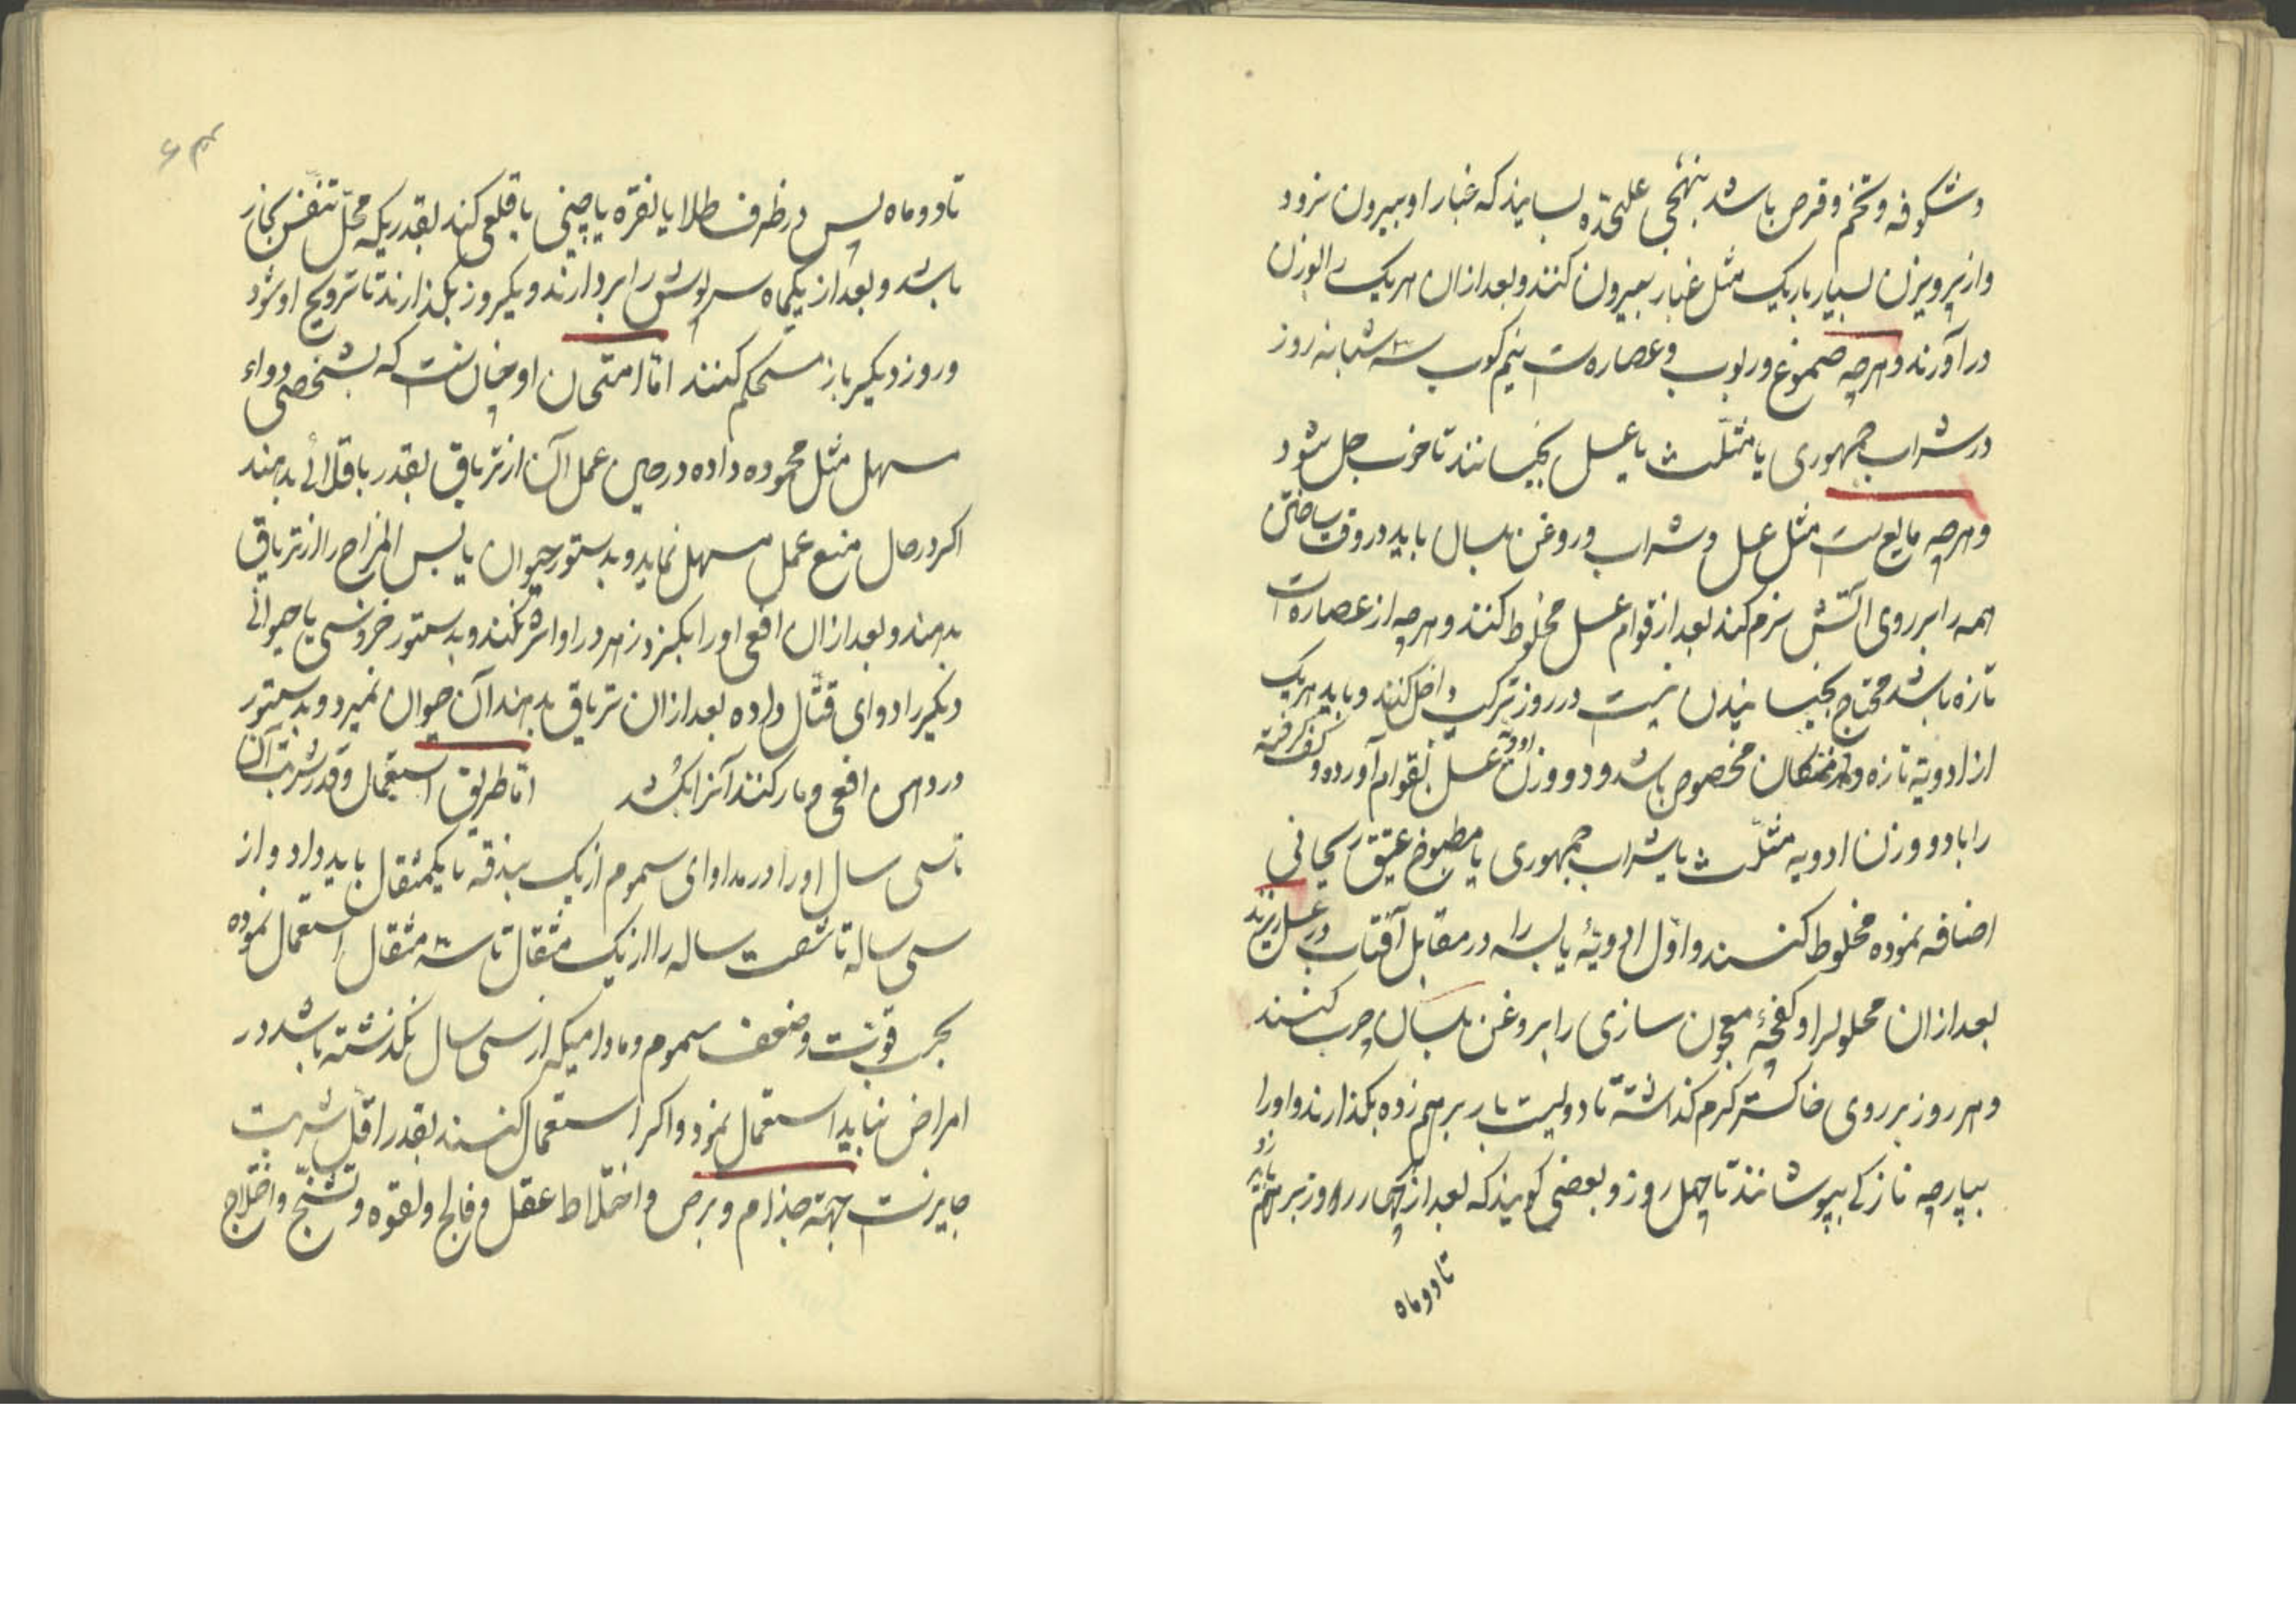 و شکوفه و تخم و قرص باشد بنهجی علیحده بسایند که غبار او بیرون نرود
و از پرویزن بسیار باریک مثل غبار بیرون کنند و بعد از آن هر یک را بوزن
در آورند و هرچه صموغ و ربوب و عصاره‌ست نیم کوب سه شبانه روز
در شراب جمهوری یا مثلث یا عسل بخیسانند تا خوب حل شود
و هرچه مایع‌ست مثل عسل و شراب و روغن بلسان باید در وقت ساختن
همه را بر روی آتش نرم کنند بعد از قوام عسل مخلوط کنند و هرچه از عصاره‌ست
تازه باشد محتاج بخیسانیدن نیست در روز ترکیب داخل کنند و باید هر یک
از ادویه تازه و مخصوص باشد و دو وزن ادویه عسل بقوام آورده و کف گرفته
را با دو وزن ادویه مثلث یا شراب جمهوری یا مطبوخ عتیق ریحانی
اضافه نموده مخلوط کنند و اول ادویهٔ یابسه را در مقابل آفتاب در عسل ریزند
بعد از آن محلولرا و کفچهٔ معجون سازی را بروغن بلسان چرب کنند
و هر روز بر روی خاکستر گرم گذاشته تا دویست بار بر هم زده بگذارند و او را
بپارچه نازکی بپوشانند تا چهل روز و بعضی گویند که بعد از چهار روز بر هم زده
تا دو ماه
تا دو ماه پس در ظرف طلا یا نقره یا چینی یا قلعی کنند بقدریکه محل تنفس بخار
باشد و بعد از یکماه سرپوش را بردارند و یکروز بگذارند تا ترویح او شود
و روز دیگر باز مستحکم کنند اما امتحان او چنان‌ست که بشخصی دواء
مسهل مثل محموده داده در حین عمل آن از تریاق بقدر باقلائی بدهند
اگر در حال منع عمل مسهل نماید و بدستور حیوان یابس المزاج را از تریاق
بدهند و بعد از آن افعی او را بگزد زهر در او اثر نکند و بدستور خروسی یا حیوانی
دیگر را دوای قتال داده بعد از آن تریاق بدهند آن حیوان نمیرد و بدستور
در دهن افعی و مار کنند آنرا بکشد اما طریق استعمال و قدر شربت آن
تا سی سال او را در مداوای سموم از یک بندقه تا یکمثقال باید داد و از
سی ساله تا شصت ساله را از یک مثقال تا سه مثقال استعمال نموده
بحسب قوت و ضعف سموم و مادامیکه از سی سال نگذشته باشد در
امراض نباید استعمال نمود و اگر استعمال کنند بقدر اقل شربت
جایزست جهة جذام و برص و اختلاط عقل و فالج و لقوه و تشنج و اختلاج